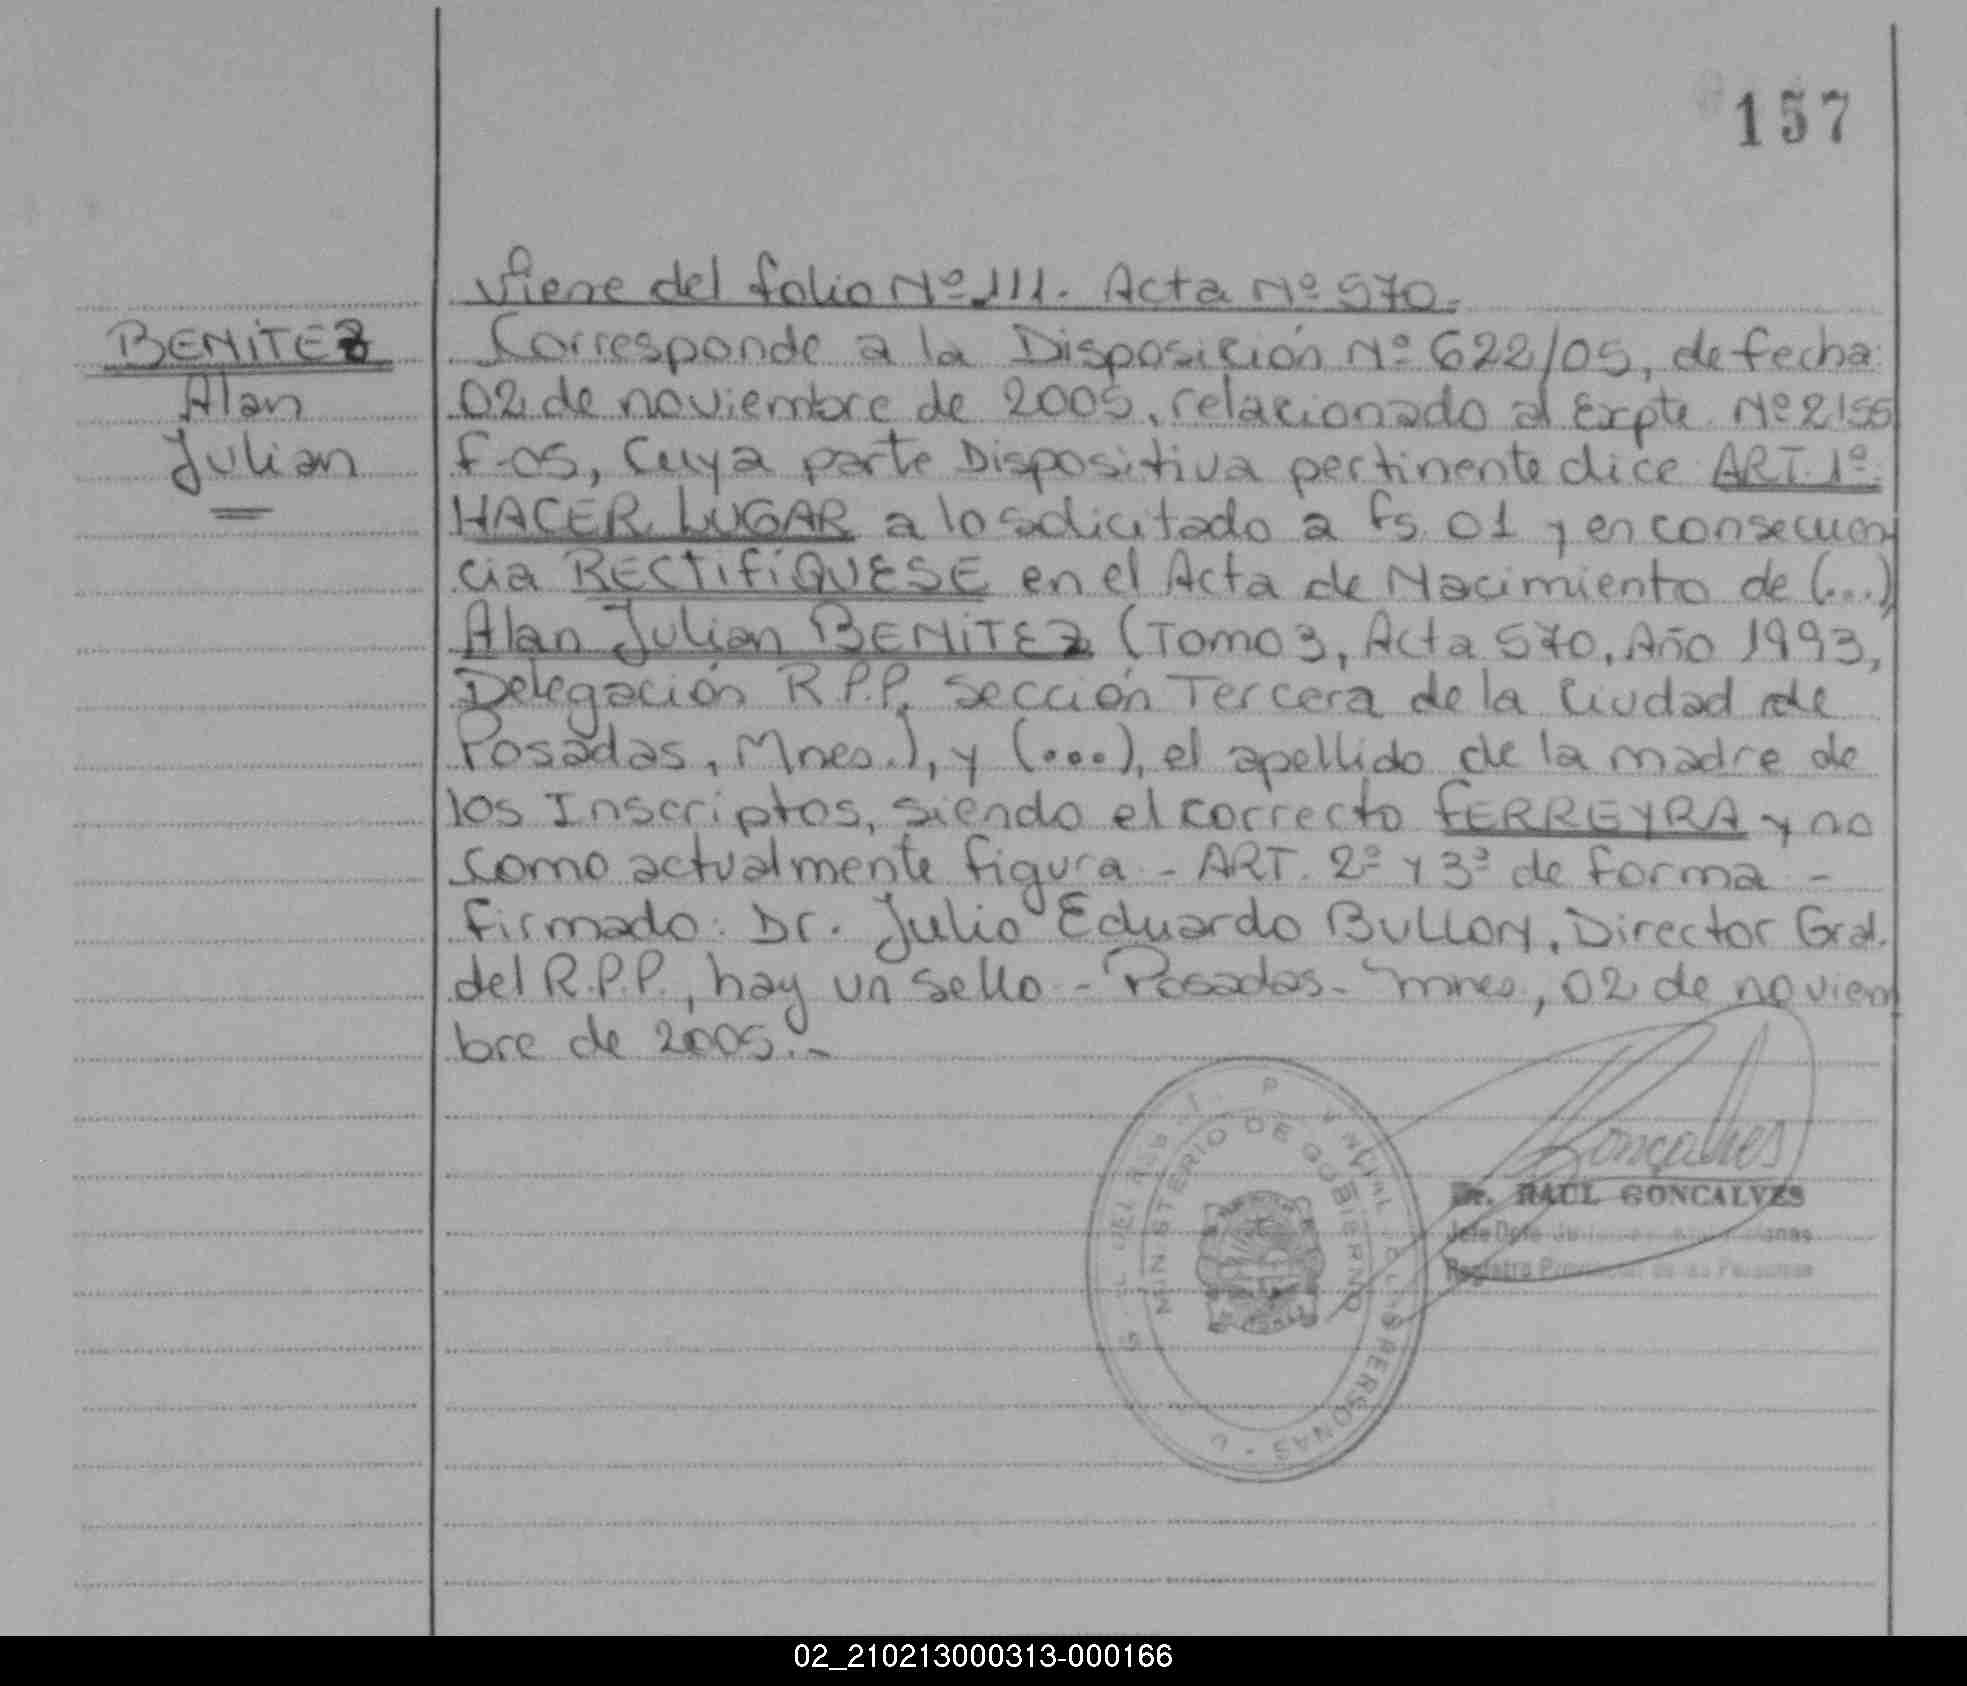 157
Viene del folio Nº 111. Acta Nº 570.
BENITEZ
Alan
Julian
Corresponde a la Disposición Nº 622/05, de fecha
02 de noviembre de 2005, relacionado al Expte Nº 2155
F-05, Cuya parte Dispositiva pertinente dice ART. 1º
HACER LUGAR a lo solicitado a fs. 01 y en consecuen
cia RECTIFÍQUESE en el Acta de Nacimiento de (...)
Alan Julian BENITEZ (Tomo 3, Acta 570, Año 1993,
Delegación R.P.P. Sección Tercera de la Ciudad de
Posadas, Mnes.), y (...), el apellido de la madre de
los Inscriptos, siendo el correcto FERREYRA y no
como actualmente figura - ART. 2º y 3º de forma -
firmado: Dr. Julio Eduardo BULLON, Director Gral.
del R.P.P., hay un sello - Posadas - Mnes, 02 de noviem
bre de 2005.-
MINISTERIO DE GOBIERNO
PERSONAS
Gonçalves
Dr. RAUL GONCALVES
Jefe Dpto
Registro Provincial de las Personas
02_210213000313-000166